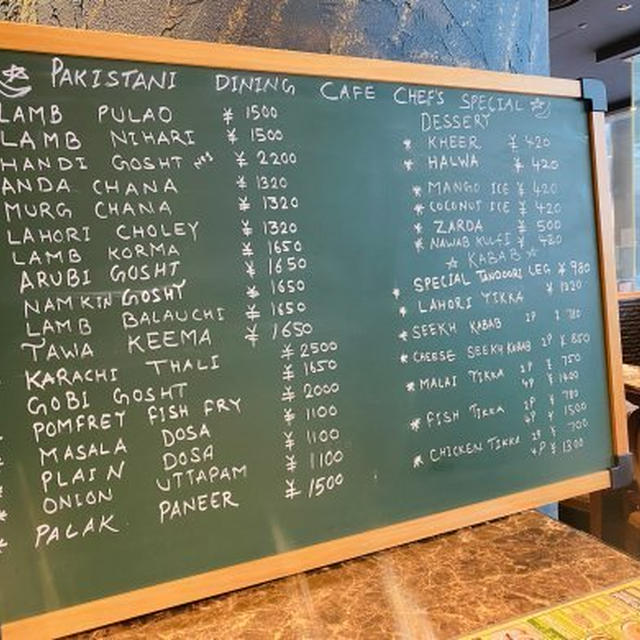 PAKISTANI DINING CAFE CHEF'S SPECIAL
LAMB PULAO ¥ 1500
LAMB NIHARI ¥ 1500
HANDI GOSHT ¥ 2200
ANDA CHANA ¥ 1320
MURG CHANA ¥ 1320
LAHORI CHOLEY ¥ 1320
LAMB KORMA ¥ 1650
ARUBI GOSHT ¥ 1650
NAMKIN GOSHT ¥ 1650
LAMB BALAUCHI ¥ 1650
TAWA KEEMA ¥ 1650
KARACHI THALI ¥ 2500
GOBI GOSHT ¥ 1650
POMFRET FISH FRY ¥ 2000
* MASALA DOSA ¥ 1100
* PLAIN DOSA ¥ 1100
* ONION UTTAPAM ¥ 1100
* PALAK PANEER ¥ 1500
DESSERT
* KHEER ¥ 420
* HALWA ¥ 420
* MANGO ICE ¥ 420
* COCONUT ICE ¥ 420
* ZARDA ¥ 500
* NAWAB KULFI ¥ 480
☆ KABAB ☆
SPECIAL TANDOORI LEG ¥ 980
* LAHORI TIKKA ¥
* SEEKH KABAB 2P ¥ 780
* CHEESE SEEKH KABAB 2P ¥ 850
* MALAI TIKKA 2P ¥ 750
4P ¥ 1400
* FISH TIKKA 2P ¥ 780
4P ¥ 1500
* CHICKEN TIKKA 2P ¥ 700
4P ¥ 1300